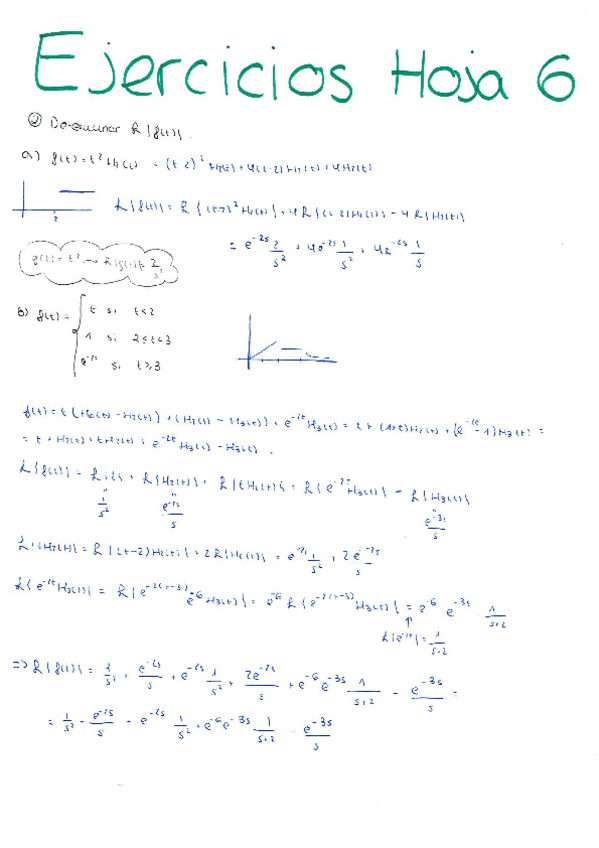 Ejercicios Hoja 6
② Determinar ℒ{f(t)}.
a) f(t) = t² H₂(t) = (t-2)² H₂(t) + 4(t-2) H₂(t) + 4H₂(t)
2
ℒ{f(t)} = ℒ{(t-2)² H₂(t)} + 4ℒ{(t-2)H₂(t)} - 4ℒ{H₂(t)}
= e^{-2s} 2/s² + 4e^{-2s} 1/s² + 4e^{-2s} 1/s
g(t) = t² → ℒ{g(t)} = 2/s²
b) f(t) = { t si t<2
1 si 2≤t<3
si t≥3
f(t) = t (H₀(t) - H₂(t)) + (H₂(t) - H₃(t)) + e^{-2t} H₃(t) = t + (1+t)H₂(t) + (e^{-2t} - 1) H₃(t) =
= t + H₂(t) + t H₂(t) + e^{-2t} H₃(t) - H₃(t).
ℒ{f(t)} = ℒ{t} + ℒ{H₂(t)} + ℒ{t H₂(t)} + ℒ{e^{-2t} H₃(t)} - ℒ{H₃(t)}
1/s² e^{-2s}/s e^{-3s}/s
ℒ{t H₂(t)} = ℒ{(t-2)H₂(t)} + 2ℒ{H₂(t)} = e^{-2s} 1/s² + 2e^{-2s}/s
ℒ{e^{-2t} H₃(t)} = ℒ{e^{-2(t-3)} e^{-6} H₃(t)} = e^{-6} ℒ{e^{-2(t-3)} H₃(t)} = e^{-6} e^{-3s} 1/(s+2)
ℒ{e^{-2t}} = 1/(s+2)
=> ℒ{f(t)} = 1/s² + e^{-2s}/s + e^{-2s} 1/s² + 2e^{-2s}/s + e^{-6} e^{-3s} 1/(s+2) - e^{-3s}/s =
= 1/s² - e^{-2s}/s - e^{-2s} 1/s² + e^{-6} e^{-3s} 1/(s+2) - e^{-3s}/s